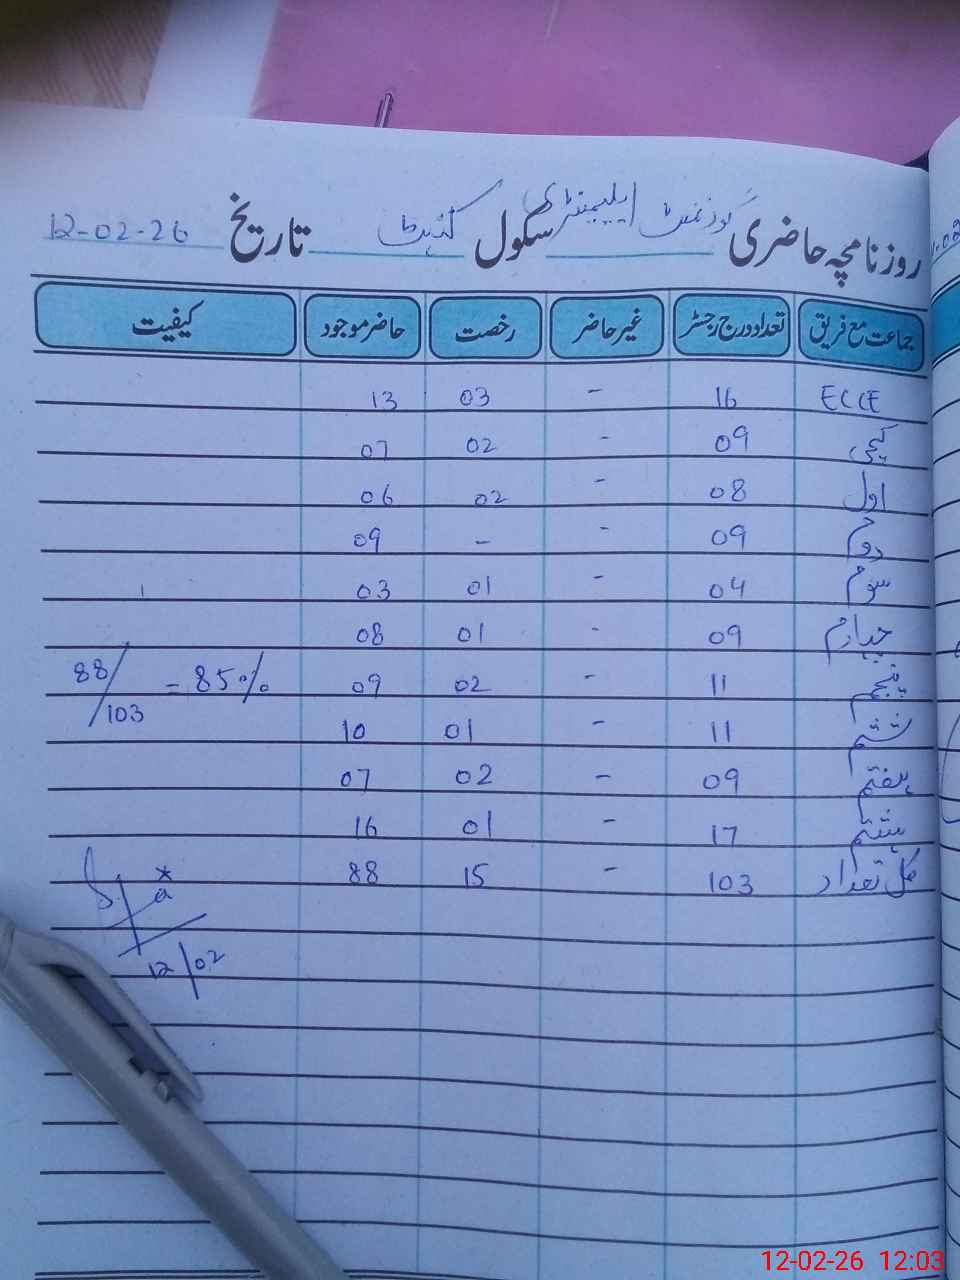 روزنامچہ حاضری گورنمنٹ ایلیمنٹری سکول تاریخ 12-02-26
جماعت مع فریق تعداد درج رجسٹر غیر حاضر رخصت حاضر موجود کیفیت
ECCE 16 - 03 13
کچی 09 - 02 07
اول 08 - 02 06
دوم 09 - - 09
سوم 04 - 01 03
چہارم 09 - 01 08
پنجم 11 - 02 09 88/103 = 85%
ششم 11 - 01 10
ہفتم 09 - 02 07
ہشتم 17 - 01 16
کل تعداد 103 - 15 88
12/02
12-02-26 12:03